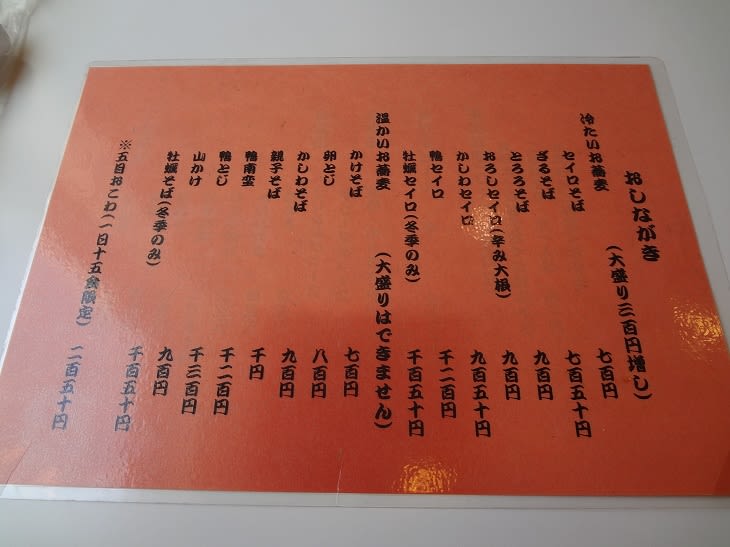 おしながき
冷たいお蕎麦 (大盛り三百円増し)
セイロそば 七百円
ざるそば 七百五十円
とろろそば 九百円
おろしセイロ(辛み大根) 九百円
かしわセイロ 九百五十円
鴨セイロ 千二百円
牡蠣セイロ(冬季のみ) 千百五十円
温かいお蕎麦 (大盛りはできません)
かけそば 七百円
卵とじ 八百円
かしわそば 九百円
親子そば 千円
鴨南蛮 千二百円
鴨とじ 千三百円
山かけ 九百円
牡蠣そば(冬季のみ) 千百五十円
※五目おこわ(一日十五食限定) 二百五十円